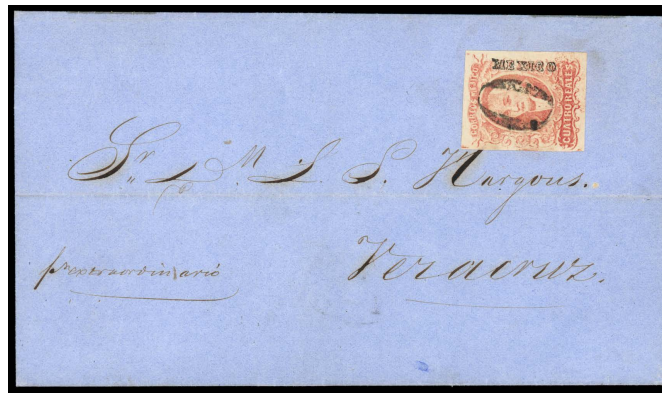 MEXICO
CUATRO REALES
Sr. D. M. L. S. Hargous.
pr. extraordinario
Veracruz.